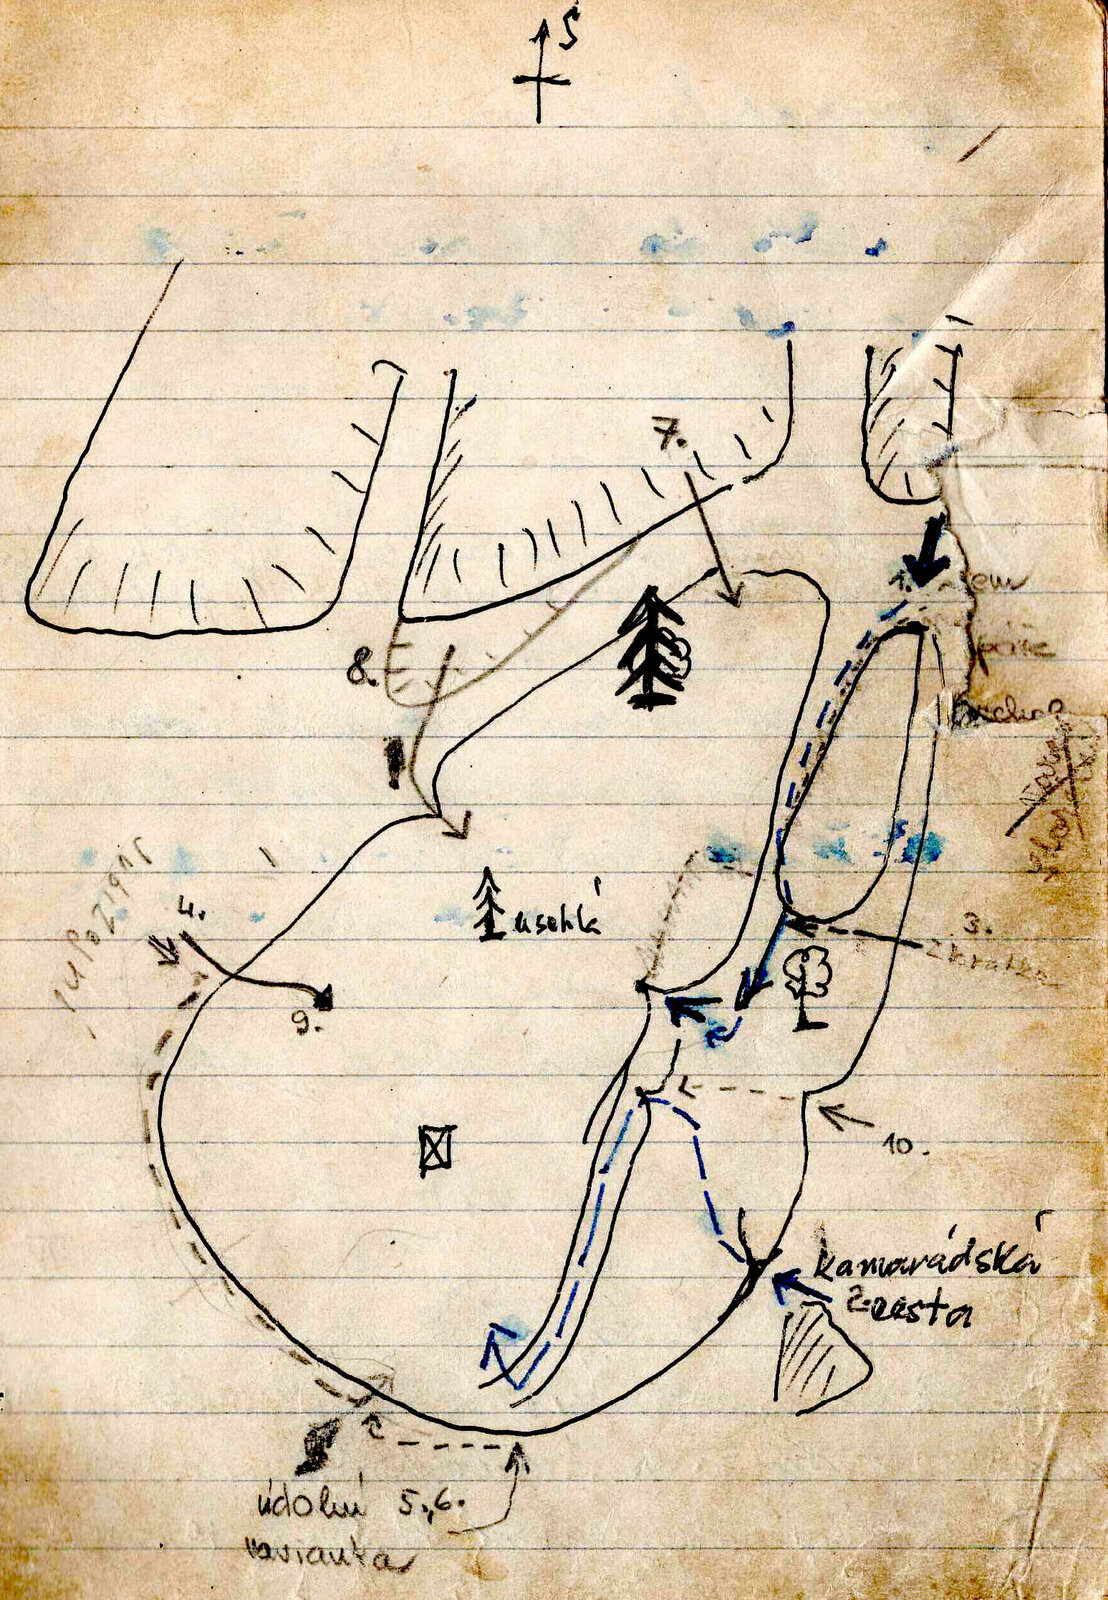 S
7.
8.
1.
4.
uschlá
3.
zkratka
9.
10.
kamarádská
2. cesta
údolní 5.,6.
varianta